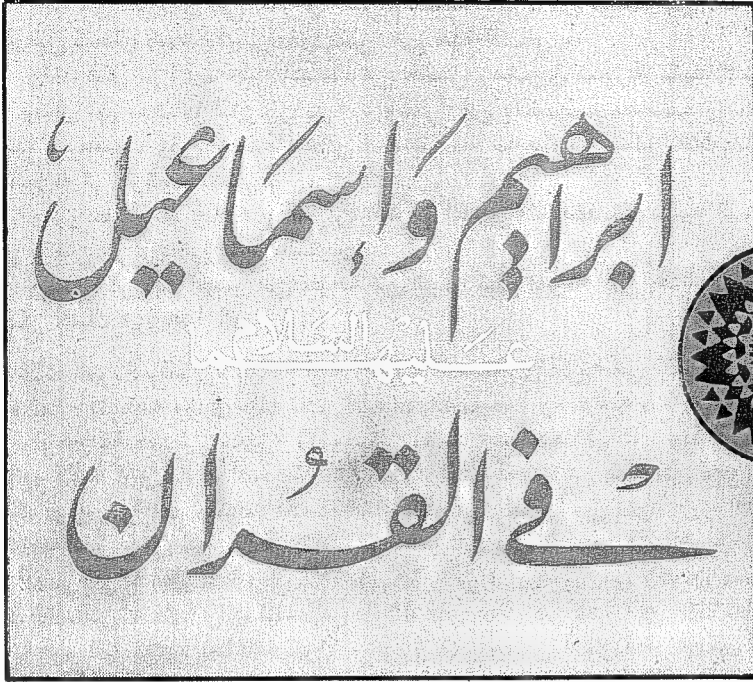 ابراهيم وَإسمَاعيل
عَليهَما السَّلام
في القُرآن